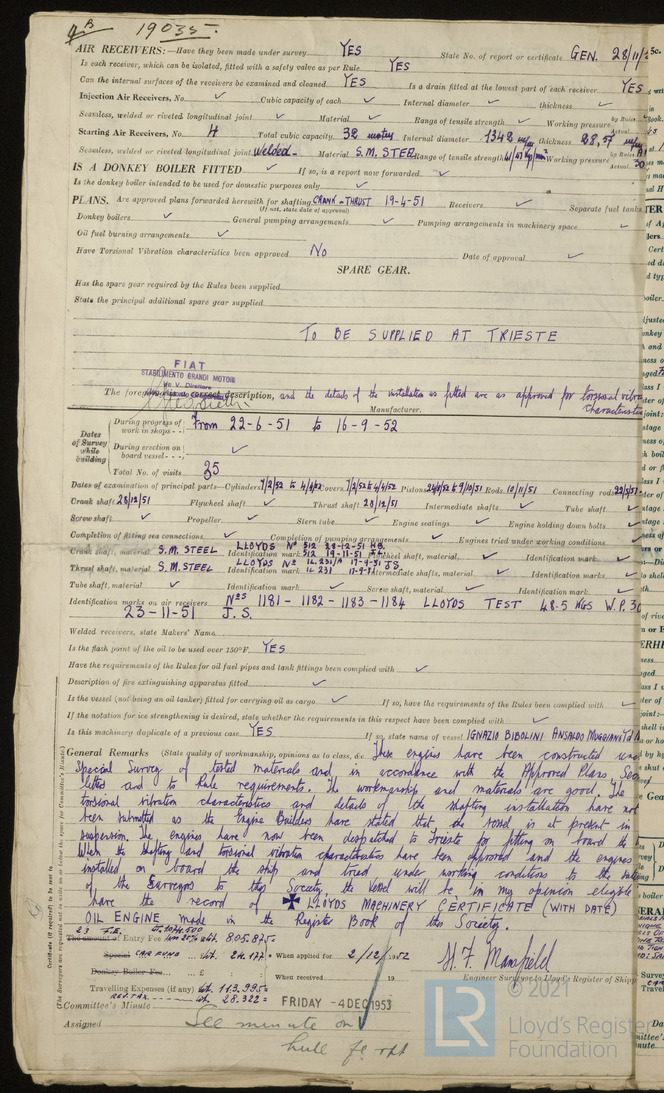 19035.
AIR RECEIVERS:—Have they been made under survey YES State No. of report or certificate GEN. 28/11/
Is each receiver, which can be isolated, fitted with a safety valve as per Rule YES
Can the internal surfaces of the receivers be examined and cleaned YES Is a drain fitted at the lowest part of each receiver YES
Injection Air Receivers, No. ✓ Cubic capacity of each ✓ Internal diameter ✓ thickness ✓
Seamless, welded or riveted longitudinal joint ✓ Material ✓ Range of tensile strength ✓ Working pressure by Rules Actual
Starting Air Receivers, No. 4 Total cubic capacity 32 Internal diameter 1342 m/m thickness 28,57 m/m
Seamless, welded or riveted longitudinal joint Welded. Material S.M. STEEL Range of tensile strength 41/47 kg/mm² Working pressure by Rules Actual 30
IS A DONKEY BOILER FITTED ✓ If so, is a report now forwarded ✓
Is the donkey boiler intended to be used for domestic purposes only ✓
PLANS. Are approved plans forwarded herewith for shafting CRANK & THRUST 19-4-51 Receivers ✓ Separate fuel tanks
(If not, state date of approval)
Donkey boilers ✓ General pumping arrangements ✓ Pumping arrangements in machinery space ✓
Oil fuel burning arrangements ✓
Have Torsional Vibration characteristics been approved No Date of approval ✓
SPARE GEAR.
Has the spare gear required by the Rules been supplied
State the principal additional spare gear supplied
TO BE SUPPLIED AT TRIESTE
FIAT
STABILIMENTO GRANDI MOTORI
The foregoing is a correct description, and the details of the installation as fitted are as approved for torsional vibra
characteristics
Manufacturer.
Dates of Survey while building
During progress of work in shops - - From 22-6-51 to 16-9-52
During erection on board vessel - - - ✓
Total No. of visits 35
Dates of examination of principal parts—Cylinders 7/2/52 to 4/4/52 Covers 7/2/52 to 4/4/52 Pistons 24/8/51 to 9/10/51 Rods 10/11/51 Connecting rods
Crank shaft 28/12/51 Flywheel shaft ✓ Thrust shaft 20/12/51 Intermediate shafts ✓ Tube shaft ✓
Screw shaft ✓ Propeller ✓ Stern tube ✓ Engine seatings ✓ Engine holding down bolts ✓
Completion of fitting sea connections ✓ Completion of pumping arrangements ✓ Engines tried under working conditions ✓
Crank shaft, material S.M. STEEL Identification mark LLOYDS Nº 512 28-12-51 H.B. 512 19-11-51 Flywheel shaft, material ✓ Identification mark ✓
Thrust shaft, material S.M. STEEL Identification mark LLOYDS Nº IL 231/A 17-9-51 J.S. IL 231 Intermediate shafts, material ✓ Identification marks ✓
Tube shaft, material ✓ Identification mark ✓ Screw shaft, material ✓ Identification mark ✓
Identification marks on air receivers NºS 1181 - 1182 - 1183 - 1184 LLOYDS TEST 48.5 KGS W.P. 30
23-11-51 J.S.
Welded receivers, state Makers' Name
Is the flash point of the oil to be used over 150°F. YES
Have the requirements of the Rules for oil fuel pipes and tank fittings been complied with ✓
Description of fire extinguishing apparatus fitted ✓
Is the vessel (not being an oil tanker) fitted for carrying oil as cargo ✓ If so, have the requirements of the Rules been complied with ✓
If the notation for ice strengthening is desired, state whether the requirements in this respect have been complied with ✓
Is this machinery duplicate of a previous case YES If so, state name of vessel IGNAZIO BIBOLINI ANSALDO MUGGIANO
General Remarks (State quality of workmanship, opinions as to class, &c. These engines have been constructed under
Special Survey of tested materials and in accordance with the Approved Plans,
letters and to Rule requirements. The workmanship and materials are good. The
torsional vibration characteristics and details of the shafting installation have not
been submitted as the Engine Builders have stated that the vessel is at present in
suspension. The engines have now been despatched to Trieste for fitting on board the
When the shafting and torsional vibration characteristics have been approved and the engines
installed on board the ship and tried under working conditions to the satis
of the Surveyors to this Society, the vessel will be in my opinion eligible
have the record of ✠ LLOYDS MACHINERY CERTIFICATE (WITH DATE)
OIL ENGINE made in the Register Book of this Society.
The amount of Entry Fee 805.875=
Special CAR FUND Lit. 24.177= When applied for 2/12/1952
Donkey Boiler Fee... £ : : When received 19
Travelling Expenses (if any) Lit. 113.995=
Lit. 28.322=
H. F. Mansfield
Engineer Surveyor to Lloyd's Register of Shipp
Committee's Minute FRIDAY - 4 DEC 1953
Assigned See minute on
hull fe rpt
Certificate (if required) to be sent to
(The Surveyors are requested not to write on or below the space for Committee's Minute.)
© 2021
LR
Lloyd's Register
Foundation